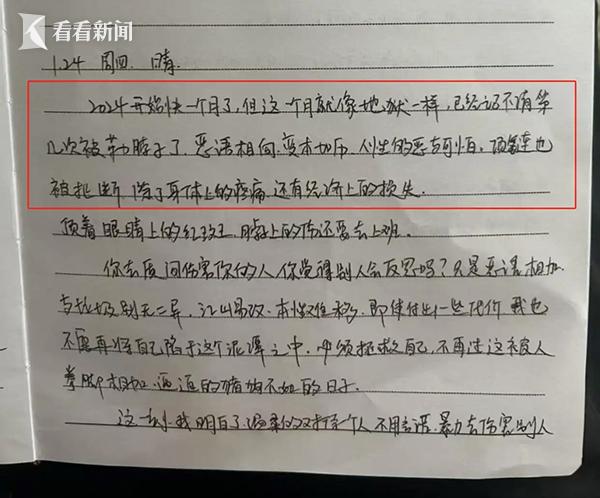 看看新闻
1.24 周四 晴
2024开始快一个月了,但这个月就像地狱一样,已经记不清第
几次被掐脖子了。恶语相向,变本加厉,人性的恶与可怕。项链也
被扯断 除了身体上的疼痛,还有经济上的损失.
顶着眼睛上的红斑,脖子上的伤还要去上班.
你去质问伤害你的人你觉得别人会反思吗?只是恶语相加
与 别无二异,江山易改,本性难移,即使付出一些代价 我也
不愿再将自己陷于这个泥潭之中,必须拯救自己,不再过这被人
拳脚相加,逼迫的猪狗不如的日子.
这一刻我明白了温柔的对待个人 不用言语、暴力去伤害别人